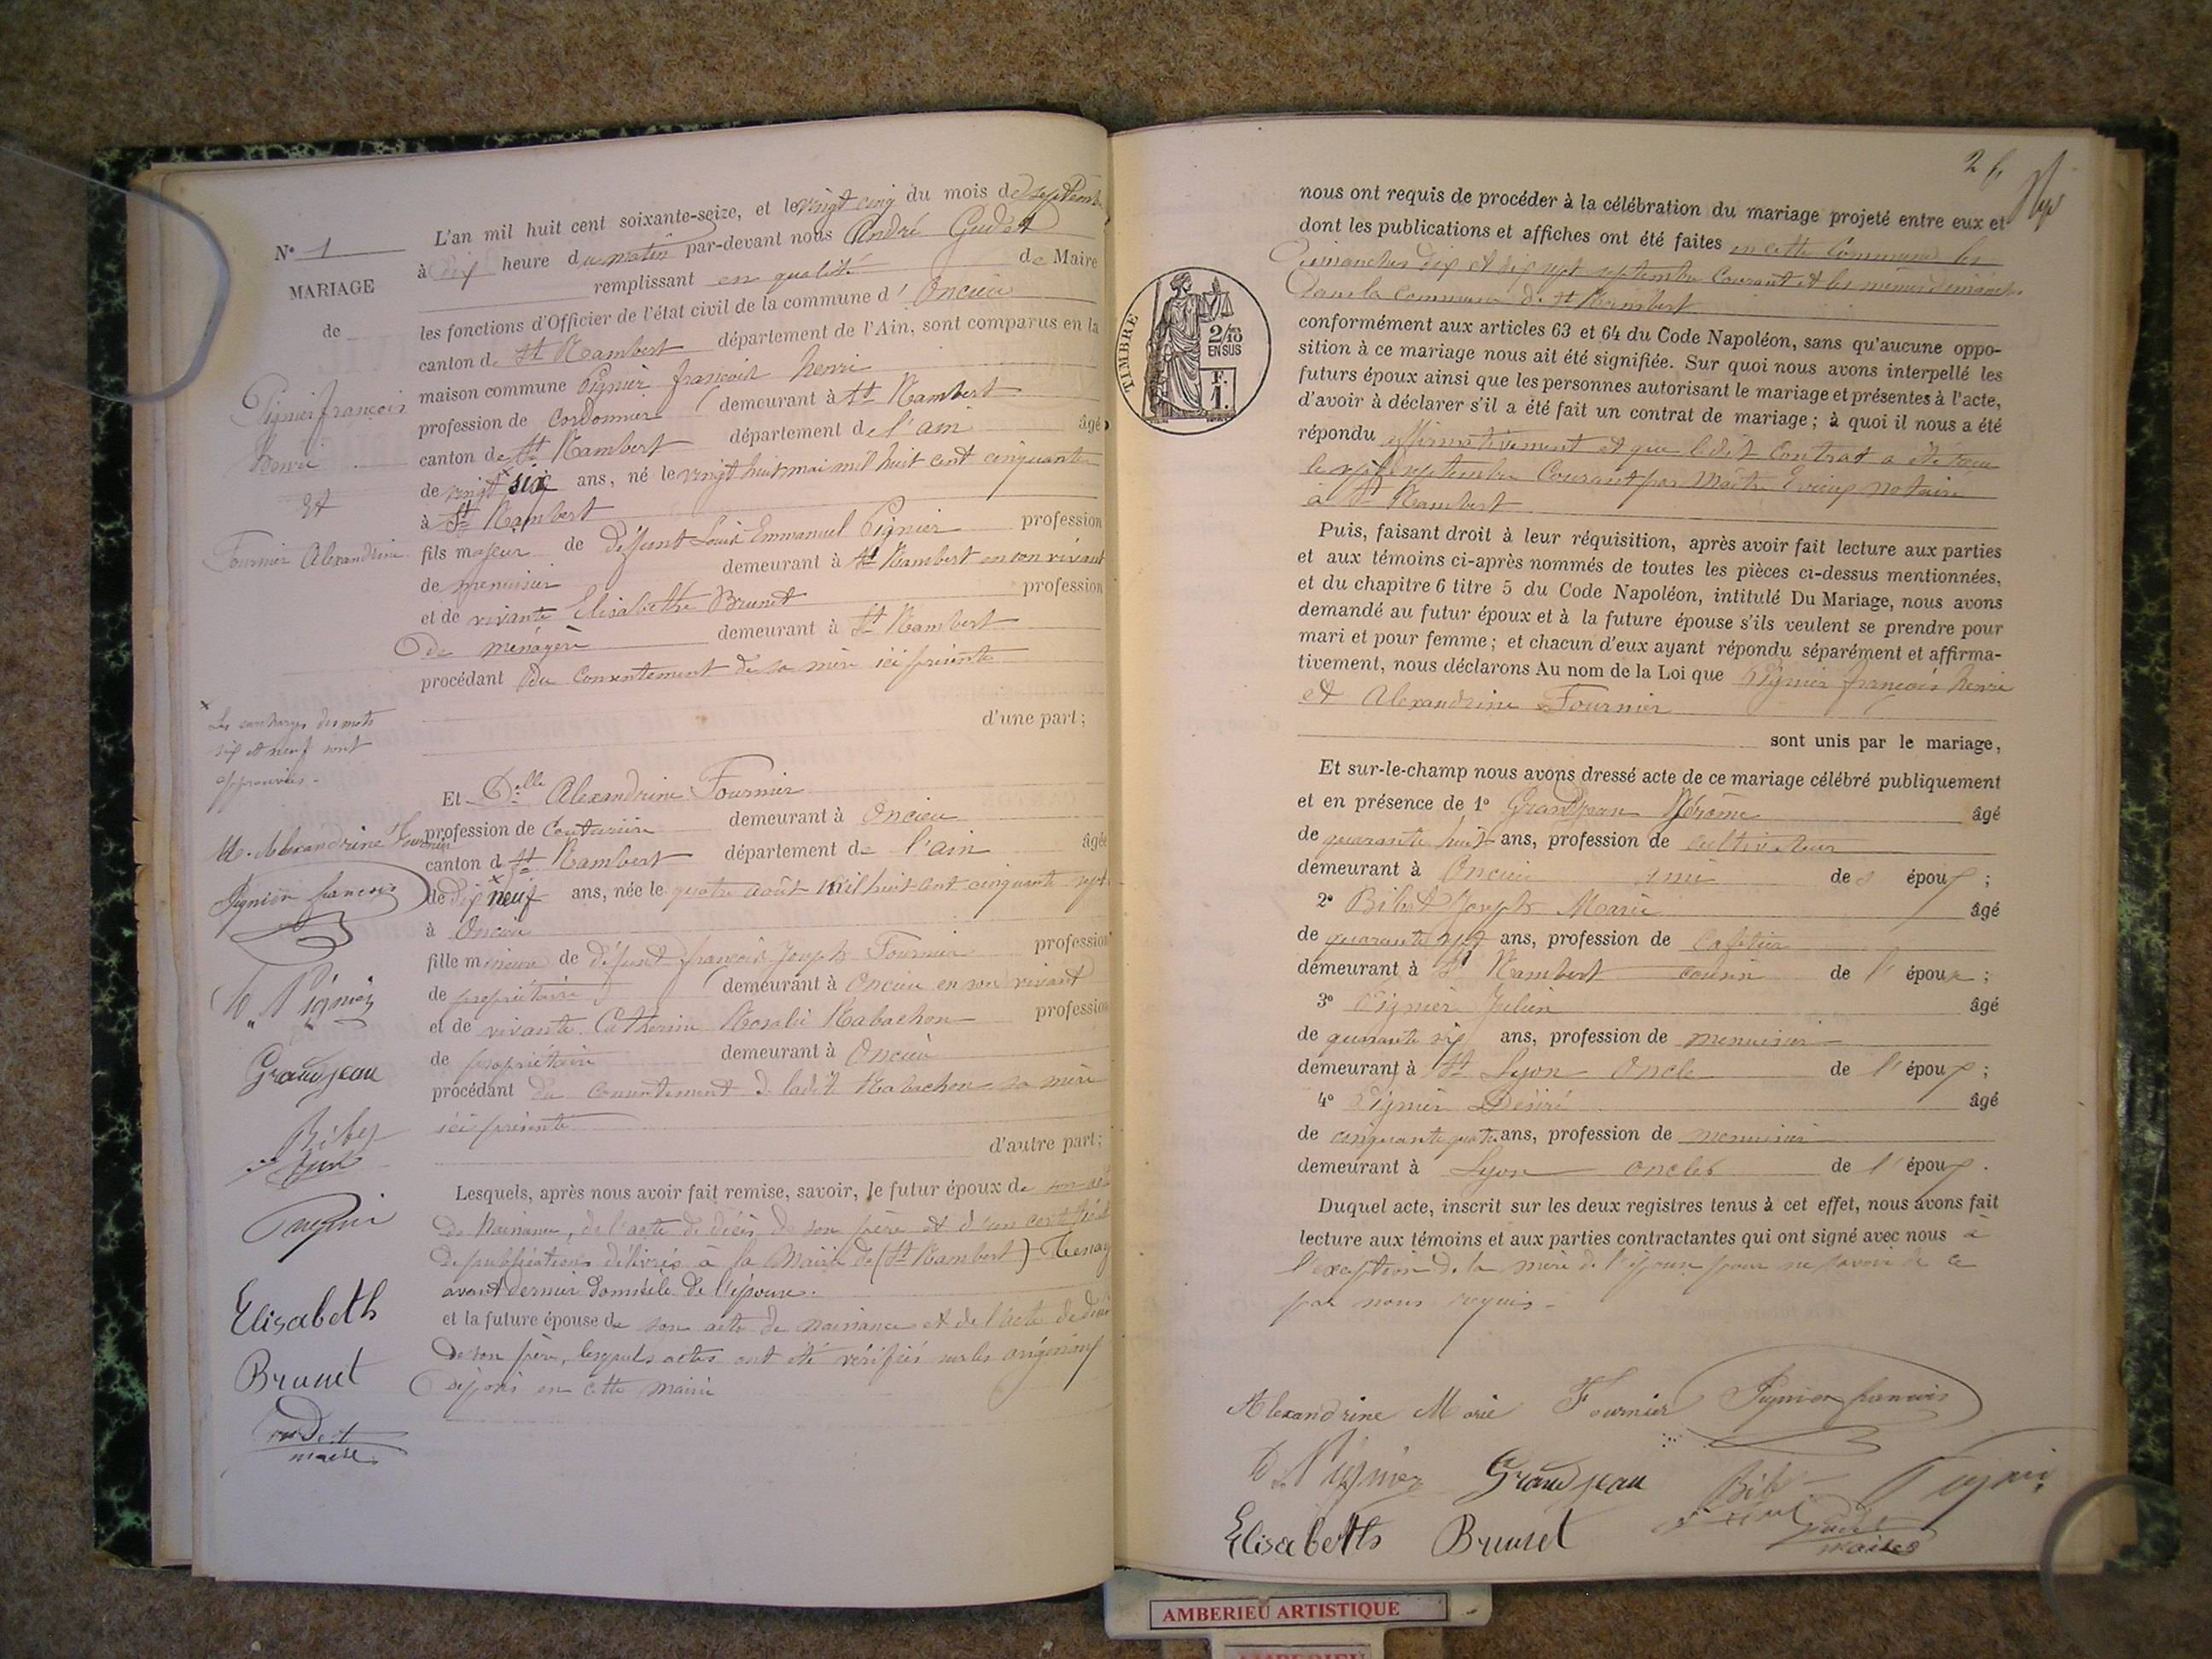 N° 1
MARIAGE
de
Pignier françois
henri
Et
Fournier Alexandrine
L'an mil huit cent soixante-seize, et le vingt cinq du mois de septembre
à dix heure du matin par-devant nous André Gudet
remplissant en qualité de Maire
les fonctions d'Officier de l'état civil de la commune d' Oncieu
canton de St Rambert département de l'Ain, sont comparus en la
maison commune Pignier françois henri
profession de cordonnier demeurant à St Rambert
canton de St Rambert département de l'ain âgé
de vingt six ans, né le vingt huit mai mil huit cent cinquante
à St Rambert
fils majeur de deffunt Louis Emmanuel Pignier profession
de menuisier demeurant à St Rambert en son vivant
et de vivante Elisabethe Brunet profession
de ménagère demeurant à St Rambert
procédant du consentement de sa mère ici présente
d'une part;
x Les surcharges des mots
six et neuf sont
approuvées.
Et Delle Alexandrine Fournier
profession de couturière demeurant à Oncieu
canton d St Rambert département de l'ain âgée
de dix neuf ans, née le quatre août mil huit cent cinquante sept
à Oncieu
fille mineure de défunt françois Joseph Fournier profession
de propriétaire demeurant à Oncieu en son vivant
et de vivante Catherine Rosalie Rabachon profession
de propriétaire demeurant à Oncieu
procédant du consentement de ladite Rabachon sa mère
ici présente
d'autre part;
Lesquels, après nous avoir fait remise, savoir, le futur époux de son acte
de naissance, de l'acte de décès de son père et d'un certificat
de publications délivrés à la Mairie de (St Rambert) Tenay
avant dernier domicile de l'épouse.
et la future épouse de son acte de naissance et de l'acte de décès
de son père, lesquels actes ont été vérifiés sur les originaux
déposés en cette mairie
M. Alexandrine Fournier
Pignier francois
D Pignier
Grandjean
Bibet
Pignier
Elisabeth
Brunet
Gudet
maire
26
nous ont requis de procéder à la célébration du mariage projeté entre eux et
dont les publications et affiches ont été faites en cette commune les
dimanches dix et dix sept septembre courant et les mêmes dimanches
dans la commune de St Rambert
conformément aux articles 63 et 64 du Code Napoléon, sans qu'aucune oppo-
sition à ce mariage nous ait été signifiée. Sur quoi nous avons interpellé les
futurs époux ainsi que les personnes autorisant le mariage et présentes à l'acte,
d'avoir à déclarer s'il a été fait un contrat de mariage; à quoi il nous a été
répondu affirmativement et que ledit Contrat a été reçu
le sept septembre courant par Maître notaire
à St Rambert
Puis, faisant droit à leur réquisition, après avoir fait lecture aux parties
et aux témoins ci-après nommés de toutes les pièces ci-dessus mentionnées,
et du chapitre 6 titre 5 du Code Napoléon, intitulé Du Mariage, nous avons
demandé au futur époux et à la future épouse s'ils veulent se prendre pour
mari et pour femme; et chacun d'eux ayant répondu séparément et affirma-
tivement, nous déclarons Au nom de la Loi que Pignier françois henri
et Alexandrine Fournier
sont unis par le mariage,
Et sur-le-champ nous avons dressé acte de ce mariage célébré publiquement
et en présence de 1° Grandjean Jérôme âgé
de quarante huit ans, profession de cultivateur
demeurant à Oncieu ami des époux ;
2° Bibet Joseph Marie âgé
de quarante sept ans, profession de cafetier
demeurant à St Rambert cousin de l' époux ;
3° Pignier Julien âgé
de quarante six ans, profession de menuisier
demeurant à St Lyon oncle de l' époux ;
4° Pignier Désiré âgé
de cinquante quatre ans, profession de menuisier
demeurant à Lyon oncles de l' époux .
Duquel acte, inscrit sur les deux registres tenus à cet effet, nous avons fait
lecture aux témoins et aux parties contractantes qui ont signé avec nous à
l'exception de la mère de l'épouse pour ne savoir de ce
par nous requis.
Alexandrine Marie Fournier Pignier francois
D Pignier Grandjean Bibet Pignier
Elisabeth Brunet Gudet
maire
TIMBRE
2/10
EN SUS
F.
1.
AMBERIEU ARTISTIQUE
AMBERIEU